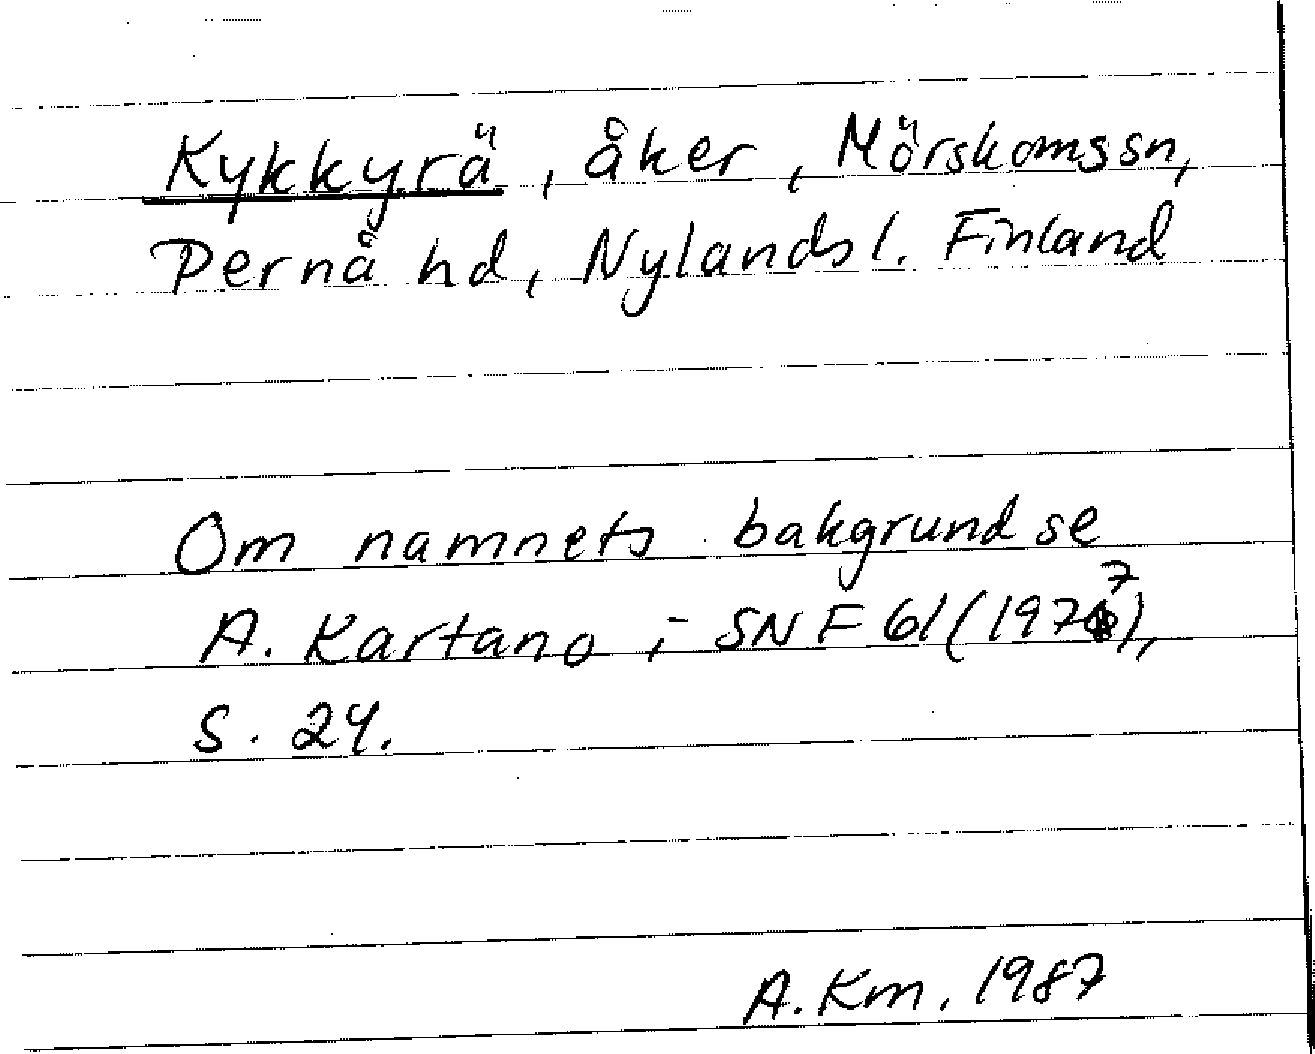 Kykkyrä, åker, Mörskomssn,
Pernå hd, Nylands l. Finland
Om namnets bakgrund se
A. Kartano i SNF 61 (1977),
s. 24.
A. Km. 1987